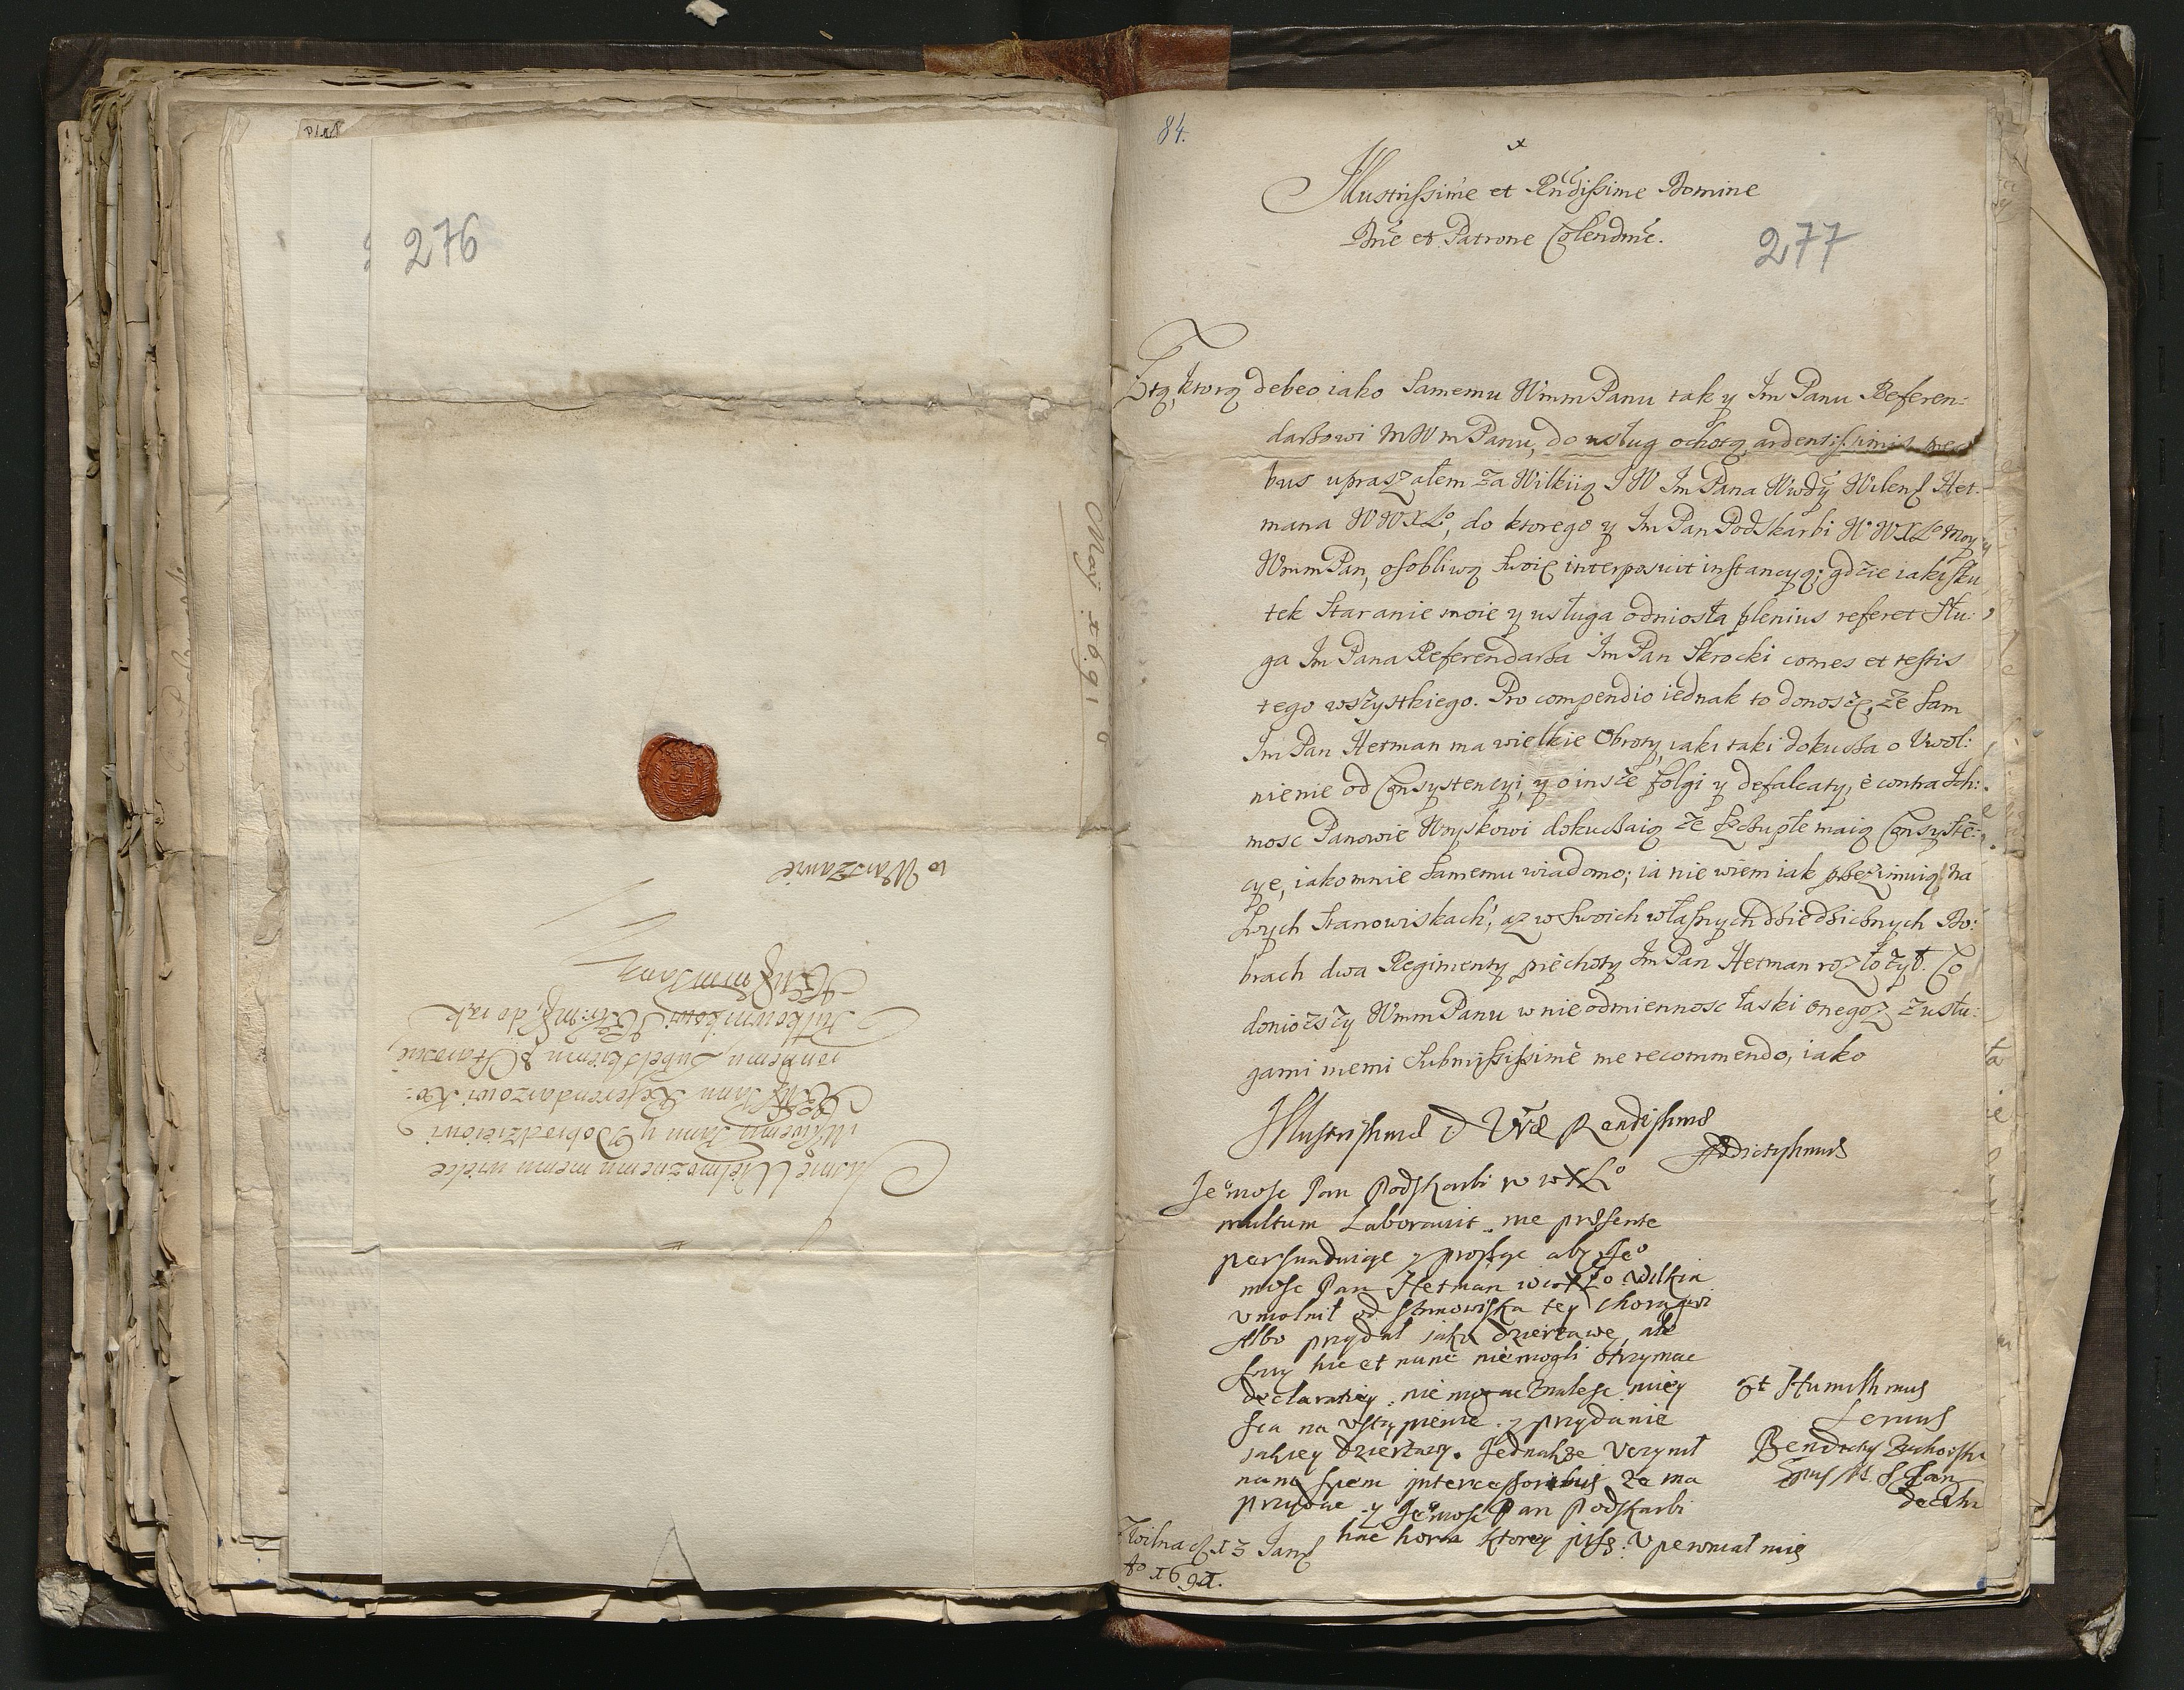 276
Maij 1691
Jasnie Wielmożnemu memu wielce
Mściwemu Panu y Dobrodzieiowi
Panu Referendarzowi Ko:
ronnemu, Lubelskiemu Staroście
Pułkownikowi do rąk
w Warszawie
84.
Illustrissime et Rndissime Domine
Dne et Patrone Colendme.
277
Ztą, ktorą debeo iako Samemu WmmPanu tak y Jm Panu Referen:
darzowi MWmPanu, do usług ochotą, ardentissimis pre
bus upraszałem za Wilkiią JW Jm Pana Wwdy Wilens Het:
mana WWXLo, do ktorego y Jm Pan Podskarbi WWXLo moy
WmmPan, osobliwą swoię interposuit instancyą; gdzie iaki sku
tek staranie moie y usługa odniosła plenius referet Słu:
ga Jm Pana Referendarza Jm Pan Skrocki comes et testis
tego wszystkiego. Pro compendio iednak to donoszę, że sam
Jm Pan Hetman ma wielkie Obroty, iaki taki dokucza o Uwol:
nienie od Consystencyi, y o insze folgi y defalcaty, è contra Ich:
mosc Panowie Woyskowi dokuczaią że szczupłe maią Consystē:
cye, iako mnie samemu wiadomo; ia nie wiem iak przezimuią na
swych stanowiskach, az w swoich własnych dziedzicznych Do:
brach dwa Regimenty piechoty Jm Pan Hetman rozłożył. Co
doniozszy WmmPanu w nieodmiennosc łaski onegoż z usłu:
gami memi submississimè me recommendo, iako
Illustrissimae D Vrae Rendissimae
Addictissimus
Jeomosc Pan Podskarbi w wXLo
multum Laborauit me praesente
persuaduiąc y prosząc aby Jeo
mosc Pan Hetman wwXLo Wilkia
vwolnił od stanowiska tey choragwi
Albo przydał jaką dzierżawę, ale
smy hic et nunc niemogli otrzymac
declaratiey, nie mogąc znalesc miey
sca na vstąpienie y przydanie
jakiey dzierżawy. Jednakze vczynił
nam spem intercessoribus że ma
przydac y Jeomosc Pan Podskarbi
hac hora ktorey piszę vpewniał mię
et Humillimus
Seruus
Zwilna d 13 Jan
Ao 1691.